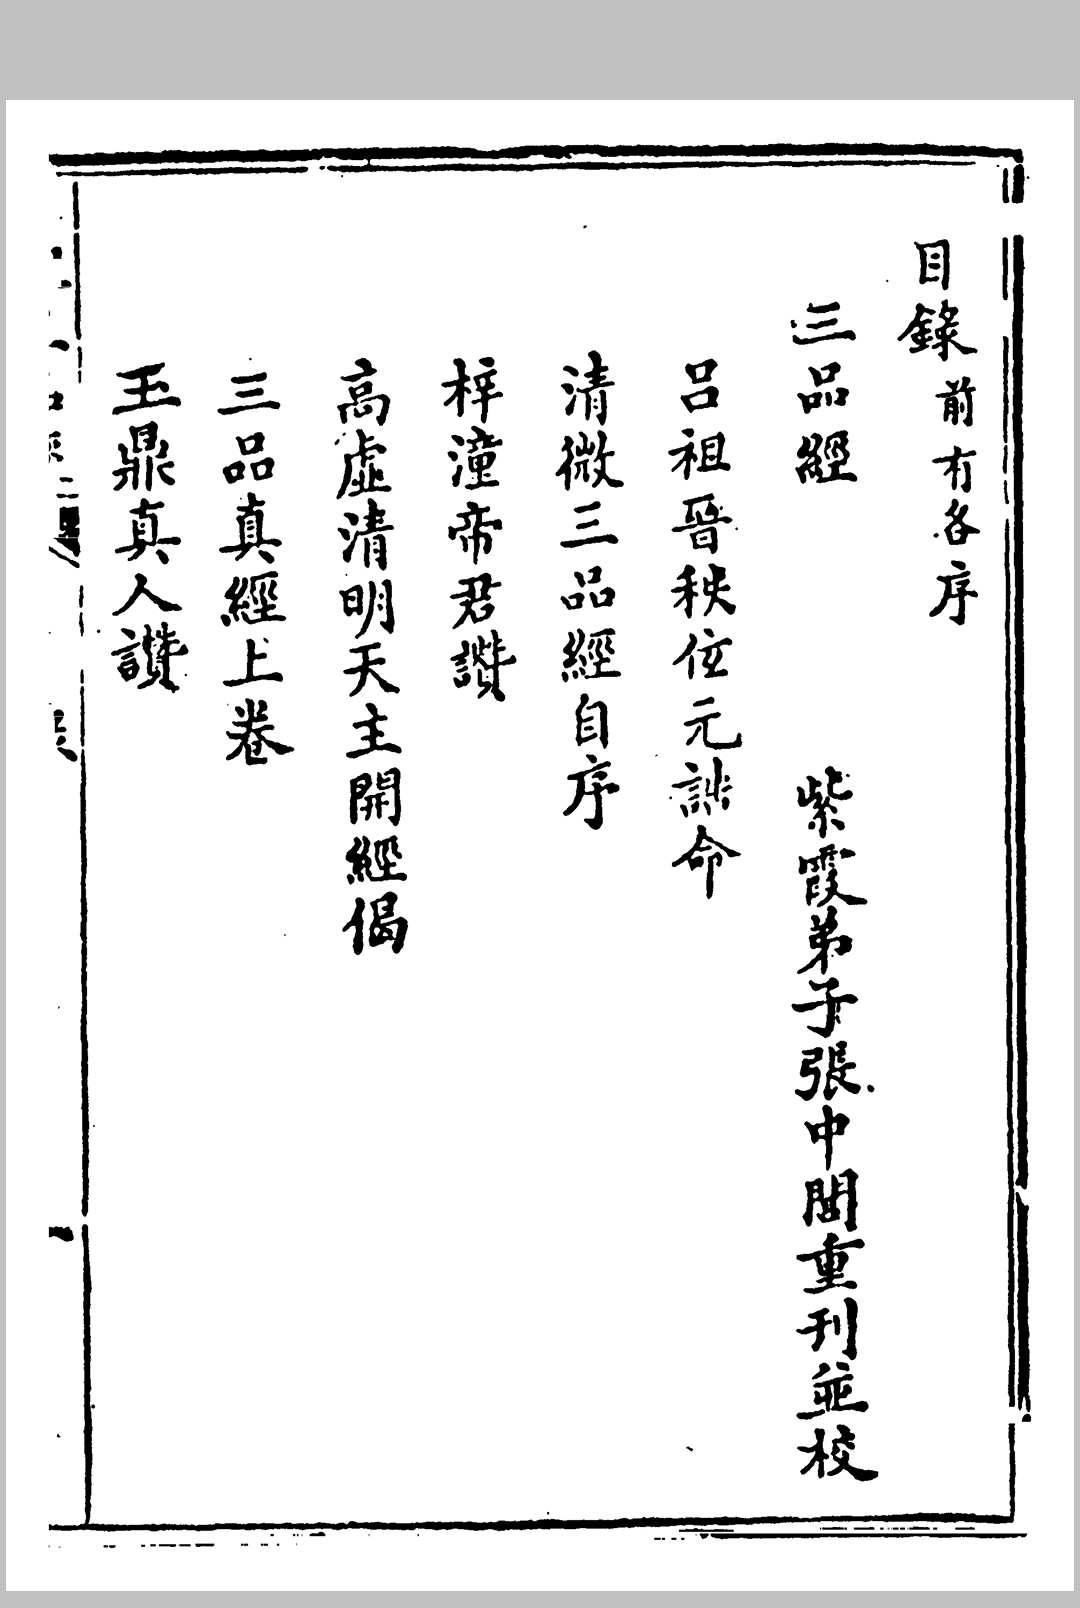 目錄前有各序
三品經 紫霞弟子張中閶重刊並校
呂祖晉秩位元誥命
清微三品經自序
梓潼帝君讚
高虛清明天主開經偈
三品真經上卷
玉鼎真人讚